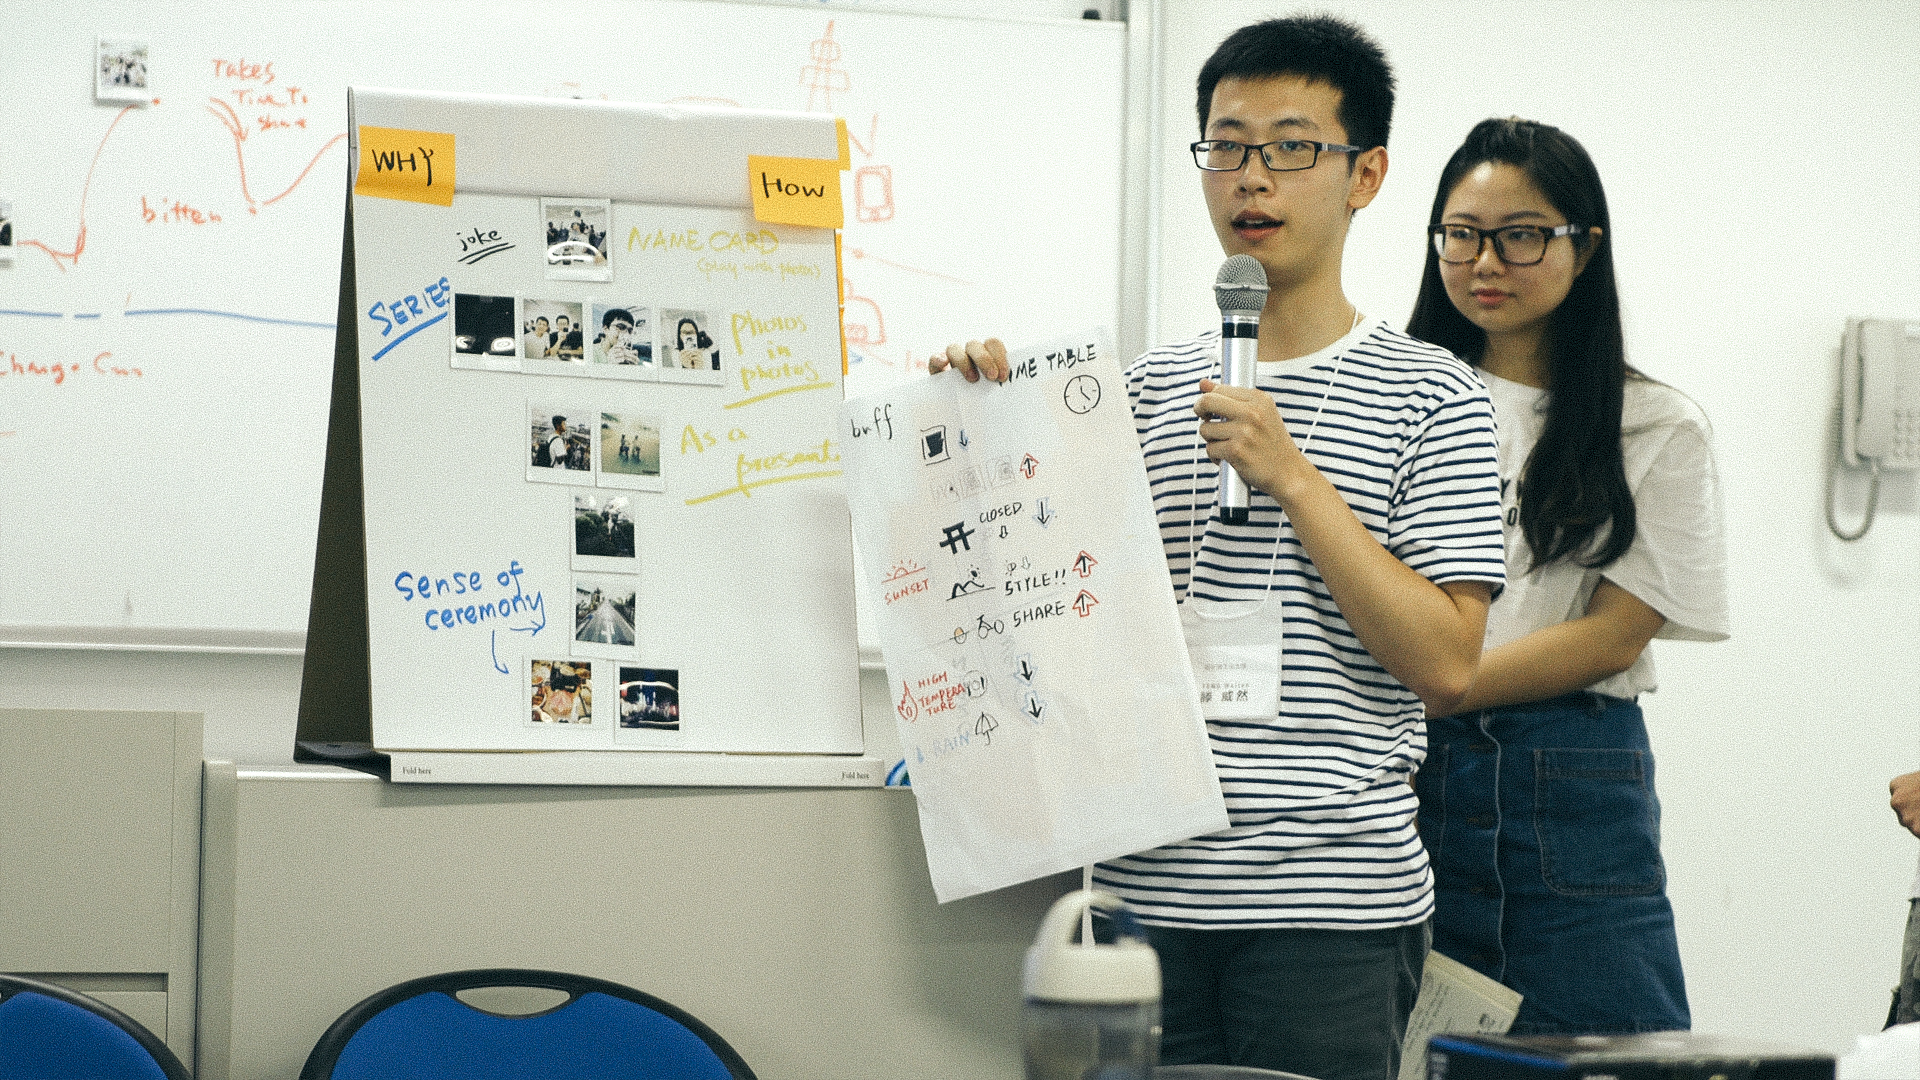 Takes
Time To
share
bitten
WHY
HOW
joke
NAME CARD
(play with photos)
SERIES
Photos
in
photos
As a
present.
Sense of
ceremony
Fold here
Fold here
TIME TABLE
buff
CLOSED
SUNSET
STYLE!!
SHARE
HIGH
TEMPERA
TURE
RAIN
威然